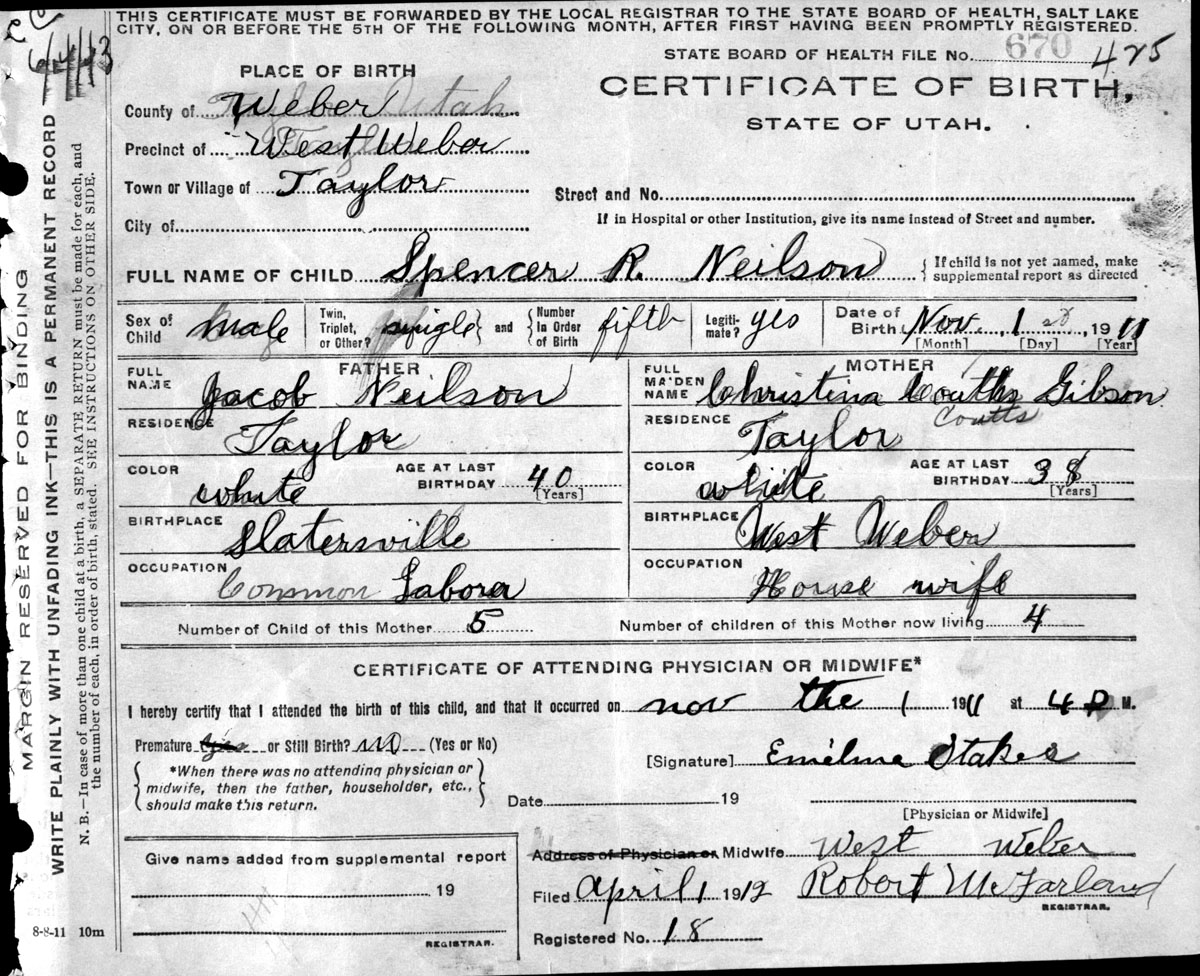 THIS CERTIFICATE MUST BE FORWARDED BY THE LOCAL REGISTRAR TO THE STATE BOARD OF HEALTH, SALT LAKE
CITY, ON OR BEFORE THE 5TH OF THE FOLLOWING MONTH, AFTER FIRST HAVING BEEN PROMPTLY REGISTERED.
STATE BOARD OF HEALTH FILE No. 670 475
PLACE OF BIRTH
CERTIFICATE OF BIRTH,
STATE OF UTAH.
County of Weber Utah
Precinct of West Weber
Town or Village of Taylor
Street and No.
City of
If in Hospital or other Institution, give its name instead of Street and number.
FULL NAME OF CHILD Spencer R. Neilson { If child is not yet named, make supplemental report as directed
Sex of Child Male Twin, Triplet, or Other? single } and { Number In Order of Birth fifth Legitimate? yes Date of Birth Nov. 1st 1911
[Month] [Day] [Year]
FATHER MOTHER
FULL NAME Jacob Neilson FULL MAIDEN NAME Christina Coutts Gibson
Coutts
RESIDENCE Taylor RESIDENCE Taylor
COLOR white AGE AT LAST BIRTHDAY 40 [Years] COLOR white AGE AT LAST BIRTHDAY 38 [Years]
BIRTHPLACE Slatersville BIRTHPLACE West Weber
OCCUPATION Common Labora OCCUPATION House wife
Number of Child of this Mother 5 Number of children of this Mother now living 4
CERTIFICATE OF ATTENDING PHYSICIAN OR MIDWIFE*
I hereby certify that I attended the birth of this child, and that it occurred on nov the 1 1911 at 4 P M.
Premature or Still Birth? no (Yes or No)
[Signature] Emelina Stakes
{ *When there was no attending physician or
midwife, then the father, householder, etc.,
should make this return. }
Date 19
[Physician or Midwife]
Give name added from supplemental report
Address of Physician or Midwife West Weber
19
Filed April 1 1912 Robert McFarland
REGISTRAR.
8-8-11 10m
REGISTRAR.
Registered No. 18
MARGIN RESERVED FOR BINDING
WRITE PLAINLY WITH UNFADING INK—THIS IS A PERMANENT RECORD
N. B.—In case of more than one child at a birth, a SEPARATE RETURN must be made for each, and
the number of each, in order of birth, stated. SEE INSTRUCTIONS ON OTHER SIDE.